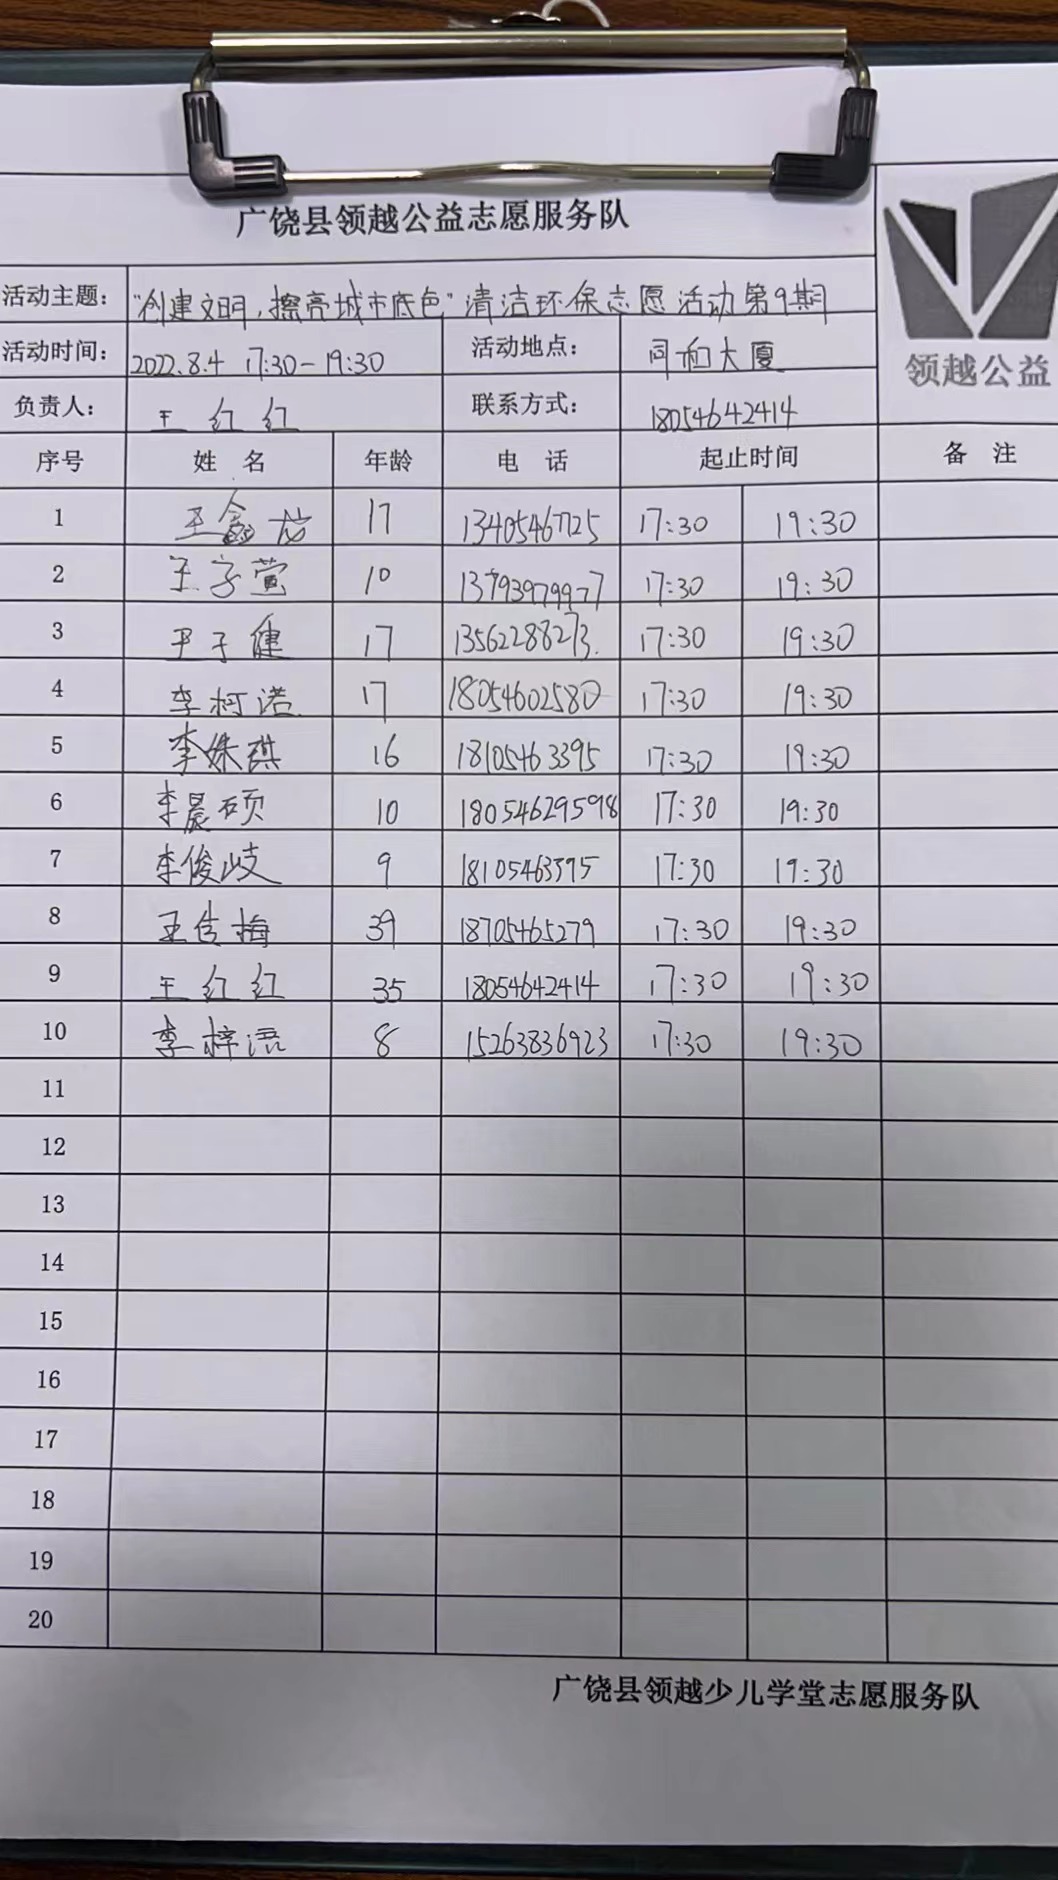 广饶县领越公益志愿服务队
领越公益
活动主题： "创建文明，擦亮城市底色"清洁环保志愿活动第9期
活动时间： 2022.8.4 17:30-19:30 活动地点： 同和大厦
负责人： 王红红 联系方式： 18054642414
序号 姓名 年龄 电话 起止时间 备注
1 王鑫龙 17 13405467725 17:30 19:30
2 王子萱 10 13793979977 17:30 19:30
3 尹子健 17 13562288273. 17:30 19:30
4 李柯诺 17 18054602580 17:30 19:30
5 李姝祺 16 18105463395 17:30 19:30
6 李晨硕 10 18054629598 17:30 19:30
7 李俊岐 9 18105463395 17:30 19:30
8 王梅 39 18705465279 17:30 19:30
9 王红红 35 18054642414 17:30 19:30
10 李梓语 8 15263836923 17:30 19:30
11
12
13
14
15
16
17
18
19
20
广饶县领越少儿学堂志愿服务队